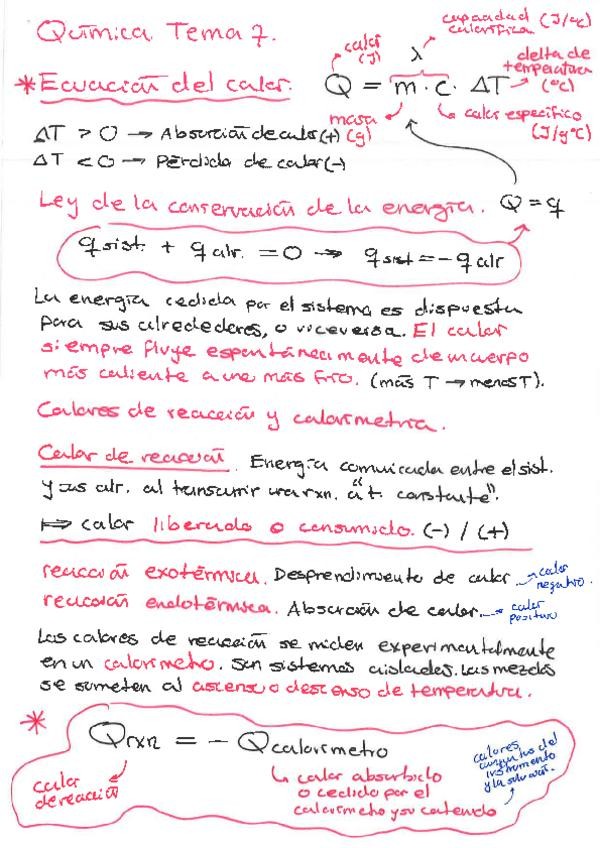 Química Tema 7.
capacidad calorífica (J/ºC)
calor (J)
λ
delta de temperatura (ºC)
* Ecuación del calor. Q = m · c · ΔT
masa (g)
calor específico (J/gºC)
ΔT > 0 → Absorción de calor (+)
ΔT < 0 → Pérdida de calor (-)
Ley de la conservación de la energía. Q = q
q sist. + q alr. = 0 → q sist = - q alr
La energía cedida por el sistema es dispuesta
para sus alrededores, o viceversa. El calor
siempre fluye espontáneamente de un cuerpo
más caliente a uno más frío. (más T → menos T).
Calores de reacción y calorimetría.
Calor de reacción. Energía comunicada entre el sist.
y sus alr. al transcurrir una rxn. a "t. constante".
⟼ calor liberado o consumido. (-) / (+)
reacción exotérmica. Desprendimiento de calor → calor negativo.
reacción endotérmica. Absorción de calor. → calor positivo
Los calores de reacción se miden experimentalmente
en un calorímetro. Son sistemas aislados. Las mezclas
se someten al ascenso o descenso de temperatura.
*
Qrxn = - Qcalorímetro
calor de reacción
calor absorbido
o cedido por el
calorímetro y su contenido
calores
del
instrumento